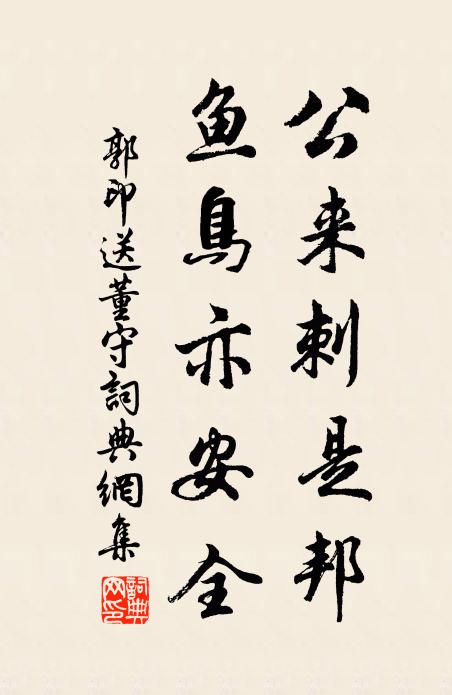 公来刺是邦
鱼鳥亦安全
郭印送董守詞典網集
詞典網印